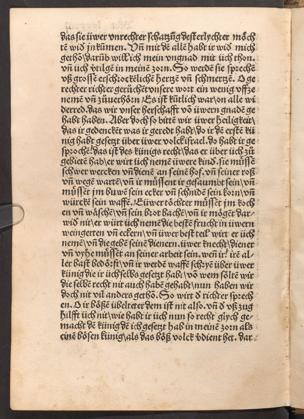 das sie üwer vnrechter schatzūg dest erlycher möch
tē wid in kūmen. Vn̄ mit dē allē habt ir wid mich
gethō/ darūb wil ich mein vngnad mit üch thon.
vn̄ üch vtilgē in meinē zorn. So werdē sie sprechē
vß grosse erschrockēlichē hertzē vn̄ schmertzē. O ge
rechter richter gerüchēt vnsere wort ein wenig vffze
nemē vn̄ zůuerhörn. Es ist kütlich war/ on alle wi
derred/ das wir vnser herschafft vō üwern gnadē ge
habt haben. Aber doch so bittē wir üwer heiligkeit/
das ir gedenckēt was ir geredt habt/ do ir dē erstē kü
nig habt gesetzt über üwer volck israel. do habt ir ge
sprochē. das ist das künigs recht/ das er über üch zů
gebietē hab/ er würt üch nemē üwere kind. sie müssē
schwer wercken vn̄ dienē an seinē hof. vn̄ seiner roß
vn̄ wegē wartē/ vn̄ ir müssent ir gefaumet sein/ vn̄
müssēt im buwē sein ecker vn̄ schnidē sein korn/ vn̄
würckē sein waffē. Üwer töchter müssēt im koch
en vn̄ wäschē/ vn̄ sein brot bachē/ vn̄ ir mögēt dar-
wid nit/ er würt üch nemē die bestē frucht in üwern
weingerten vn̄ eckern/ vn̄ üwer best teil würt er üch
nemē/ vn̄ die gebē seinē dienern. üwer knecht/ diener
vn̄ vyhe müssēt an seiner arbeit sein. wen̄ ir irē al-
ler bast bedörfft/ vn̄ ir werdē waffē schryē über üwer
künig die ir üch selbs gesetzt habt/ vō wem söltē wir
die selbē recht nit auch habē gehabt/ nun haben wir
doch nit vil anders gethō. So würt d richter sprech
en. O ir bößē übeltrēter dem ist nit also. vn̄ d vßzug
hilfft üch nit/ wie habt ir üch nun so recht glych ge-
macht dē künig dē ich gesetzt hab in meinē zorn als
einē bösen künig/ als das böß volck vdient het. dar-